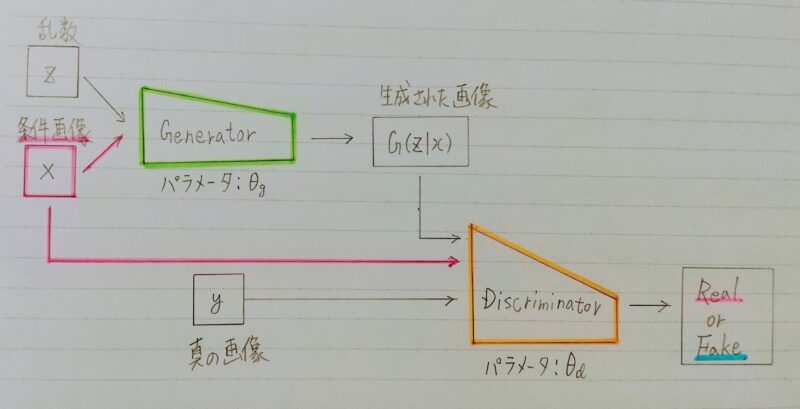 乱数
z
条件画像
x
Generator
パラメータ:θg
生成された画像
G(z|x)
y
真の画像
Discriminator
パラメータ:θd
Real
or
Fake